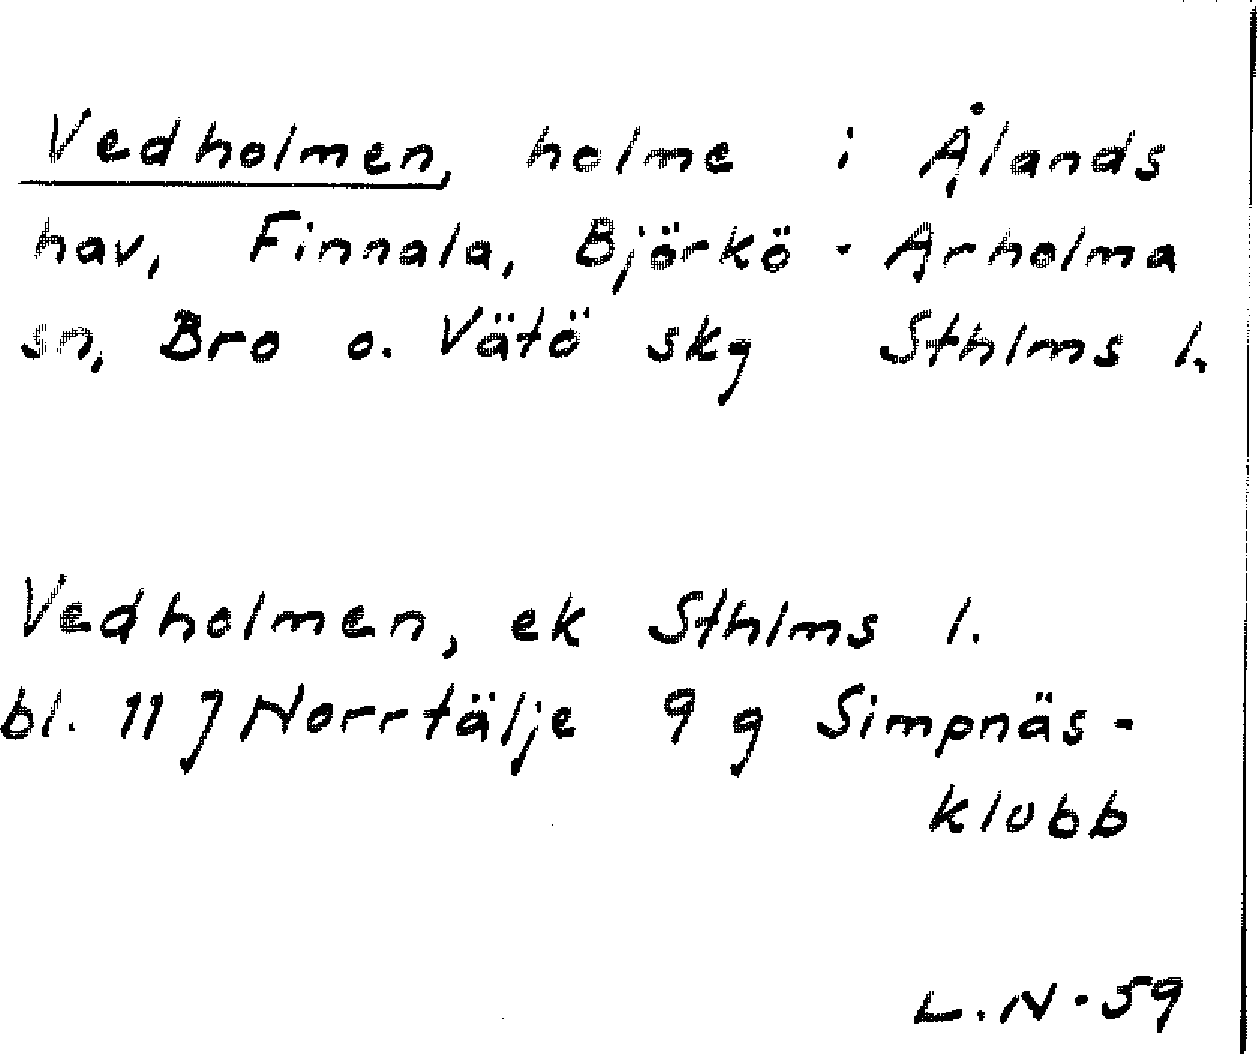 Vedholmen, holme i Ålands
hav, Finnala, Björkö - Arholma
sn, Bro o. Vätö skg Sthlms l.
Vedholmen, ek Sthlms l.
bl. 11 J Norrtälje 9 g Simpnäs-
klubb
L.N-59